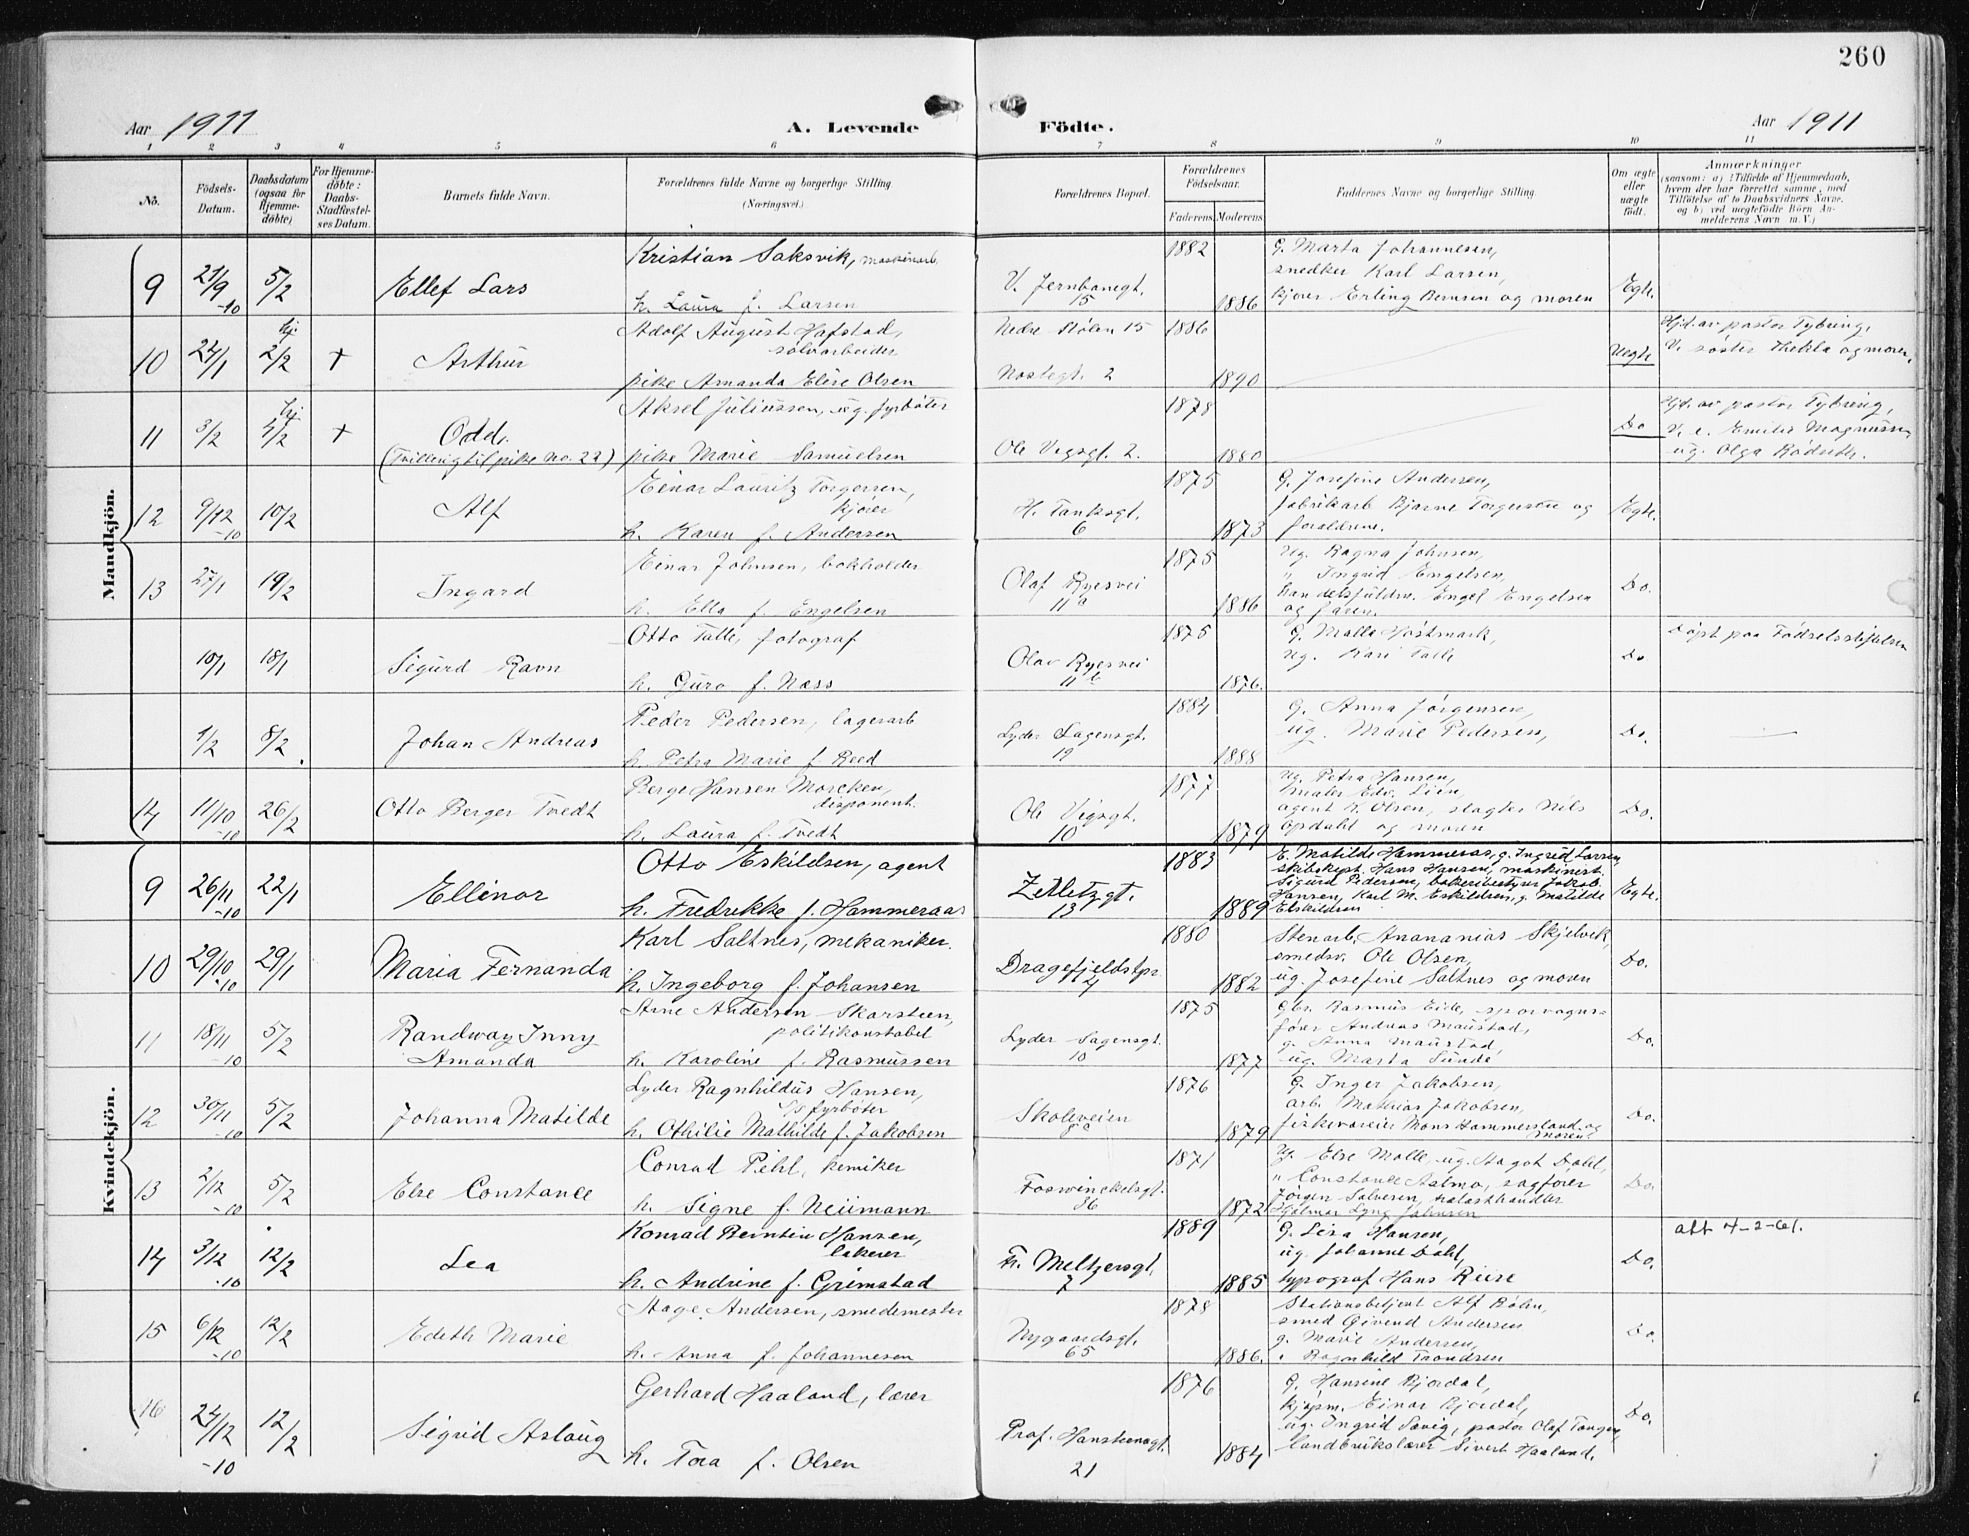 260
Aar 1911
A. Levende
Födte.
Aar 1911
1 2 3 4 5 6 7 8 9 10 11
No.
Födsels-
Datum.
Daabsdatum
(ogsaa for
Hjemme-
döbte)
For Hjemme-
döbte:
Daabs-
Stadfæstel-
ses Datum.
Barnets fulde Navn.
Forældrenes fulde Navne og borgerlige Stilling
(Næringsvei.)
Forældrenes Bopæl.
Forældrenes
Födselsaar.
Faderens Moderens
Faddernes Navne og borgerlige Stilling.
Om ægte
eller
uægte
födt.
Anmærkninger
(saasom: a) i Tilfælde af Hjemmedaab,
hvem der har forrettet samme, med
Tilföielse af to Daabsvidners Navne.
og b) ved uægtefödte Börn An-
melderens Navn m. V.)
Mandkjön.
9 21/9 -10 5/2
Ellef Lars
Kristian Saksvik, maskinarb.
h. Laura f. Larsen
V. Jernbanegt.
15
1882
1886
G. Marta Johannesen,
snedker Karl Larsen,
kjører Erling Bernsen og moren
Egte.
10 24/1 hj. 2/2 +
Arthur
Adolf August Hafstad,
sølvarbeider
pike Amanda Elise Olsen
Nedre Stølen 15
Nostegt. 2
1886
1890
Uegte
Hjd. av pastor Tybring,
V. søster Thekla og moren.
11 3/2 hj. 4/2 +
Odd.
(Tvilling til pike no. 22)
Aksel Juliussen, ug. fyrbøter
pike Marie Samuelsen
Ole Vigsgt. 2.
1878
1880
Do
Hjd. av pastor Tybring,
V. e. Emilie Magnussen,
ug. Olga Rødseth.
12 9/12 -10 10/2
Alf
Einar Lauritz Torgersen,
kjører
h. Karen f. Andersen
H. Tanksgt.
6
1875
1873
G. Josefine Andersen,
fabrikarb Bjarne Torgersen og
forældrene.
Egte.
13 27/1 19/2
Ingard
Einar Johnsen, bokholder
h. Ella f. Engelsen
Olaf Ryesvei
11a
1875
1886
Ug. Ragna Johnsen,
" Ingrid Engelsen,
handelsfuldm. Engel Engelsen
og faren.
Do.
10/1 18/1
Sigurd Ravn
Otto Talle, fotograf
h. Guro f. Næss
Olav Ryesvei
11b
1875
1876.
G. Malla Høstmark,
ug. Kari Talle
Do
Døpt paa Fødselsstiftelsen
1/2 8/2
Johan Andreas
Peder Pedersen, lagerarb
h. Petra Marie f. Reed
Lyder Sagensgt.
19
1884
1888
G. Anna Jørgensen,
ug. Marie Pedersen,
Do.
14 11/10 -10 26/2
Otto Berger Tvedt
Berge Hansen Morcken,
disponent.
h. Laura f. Tvedt
Ole Vigsgt.
10
1877
1879
Ug. Petra Hansen,
maler Edv. Lien,
agent K. Olsen, slagter Nils
Opdahl og moren
Do.
Kvindekjön.
9 26/11 -10 22/1
Ellinor
Otto Eskildsen, agent
h. Fredrikke f. Hammeraas
Zetlitzgt.
13
1883
1889
E. Matilde Hammeras, g. Ingrid Larsen,
skibskapt. Hans Hansen, maskinist
Sigurd Pedersen, bakeribestyrer Jakob
Hansen, Karl M. Eskildsen, g. Matilde
Eskildsen
Egte.
10 29/10 -10 29/1
Maria Fernanda
Karl Saltnes, mekaniker.
h. Ingeborg f. Johansen
Dragefjeldstpr.
4
1880
1882
Stenarb. Anananias Skjelvik,
smedsv. Ole Olsen,
ug. Josefine Saltnes og moren
Do.
11 18/11 -10 5/2
Randway Inny
Amanda
Arne Andersen Skarsteen,
politikonstabel
h. Karoline f. Rasmussen
Lyder Sagensgt.
10
1875
1877
Gbr. Rasmus Eide, sporvogns-
fører Andreas Maustad,
g. Anna Maustad,
ug. Marta Sunde
Do.
12 30/11 -10 5/2
Johanna Matilde
Lyder Ragnhildus Hansen,
D/S fyrbøter
h. Othilie Mathilde f. Jakobsen
Skoleveien
8a
1876
1879
G. Inger Jakobsen,
arb. Mathias Jakobsen,
fiskevræier Mons Hammersland og
moren.
Do.
13 2/12 -10 5/2
Else Constance
Conrad Pihl, kemiker
h. Signe f. Neümann
Foswinckelsgt.
36
1871
1872
Ug. Else Molle, ug. Aagot Dahl,
" Constance Aalmo, sagfører
Jørgen Salvesen, trælasthandler
Hjalmar Lyng Johnsen
Do.
14 3/12 -10 12/2
Lea
Konrad Berntin Hansen,
lakerer
h. Andrine f. Grimstad
Fr. Meltzersgt.
7
1889
1885
G. Lisa Hansen,
ug. Johanne Dahl,
typograf Hans Reise
Do.
att 4-2-61.
15 6/12 -10 12/2
Edith Marie
Aage Andersen, smedemester
h. Anna f. Johannesen
Nygaardsgt.
65
1878
1886.
Stationsbetjent Alf Bøhn,
smed Eivind Andersen
g. Marie Andersen,
" Ragnhild Trondsen
Do.
16 24/12 -10 12/2
Sigrid Aslaug
Gerhard Haaland, lærer
h. Tora f. Olsen
Prof. Hansteensgt.
21
1876
1884
G. Hansine Bjordal,
kjøpm. Einar Bjordal,
ug. Ingrid Søvig, pastor Olaf Tangen,
landbrukslærer Sivert Haaland.
Do.